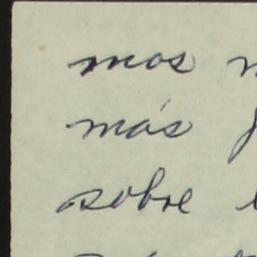 mos
más
sobre